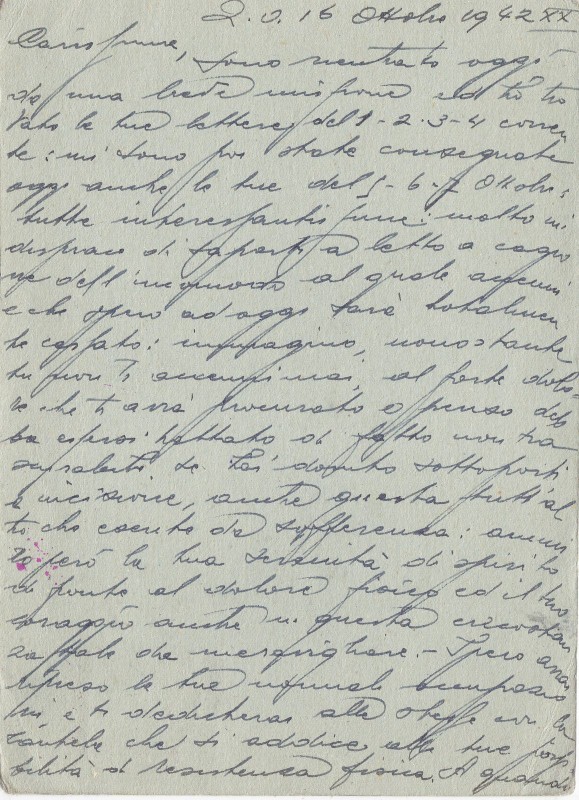 Z.O. 16 Ottobre 1942 XX
Carissima, sono rientrato oggi
da una breve missione ed ho tro
vato le tue lettere del 1-2-3-4 corren
te: mi sono poi state consegnate
oggi anche le tue del 5-6-7 Ottobre:
tutte interessantissime: molto mi
dispiace di saperti a letto a cagio
ne dell'incomodo al quale accenni
e che spero ad oggi sarà totalmen
te cessato: immagino, nonostante
tu non vi accennai, al forte dolo-
re che ti avrà procurato e penso deb
ba essersi trattato di fatto non tra
scurabile se hai dovuto sottoporti
a incisione, anche questa tutt'al
tro che esente da sofferenza: ammi
ro però la tua serenità di spirito
di fronte al dolore fisico ed il tuo
coraggio anche in questa circostan
za tale da meravigliare. - Spero avrai
ripreso le tue normali occupazio
ni e ti dedicherai alle stesse con la
cautela che si addice alle tue possi
bilità di resistenza fisica. A quando